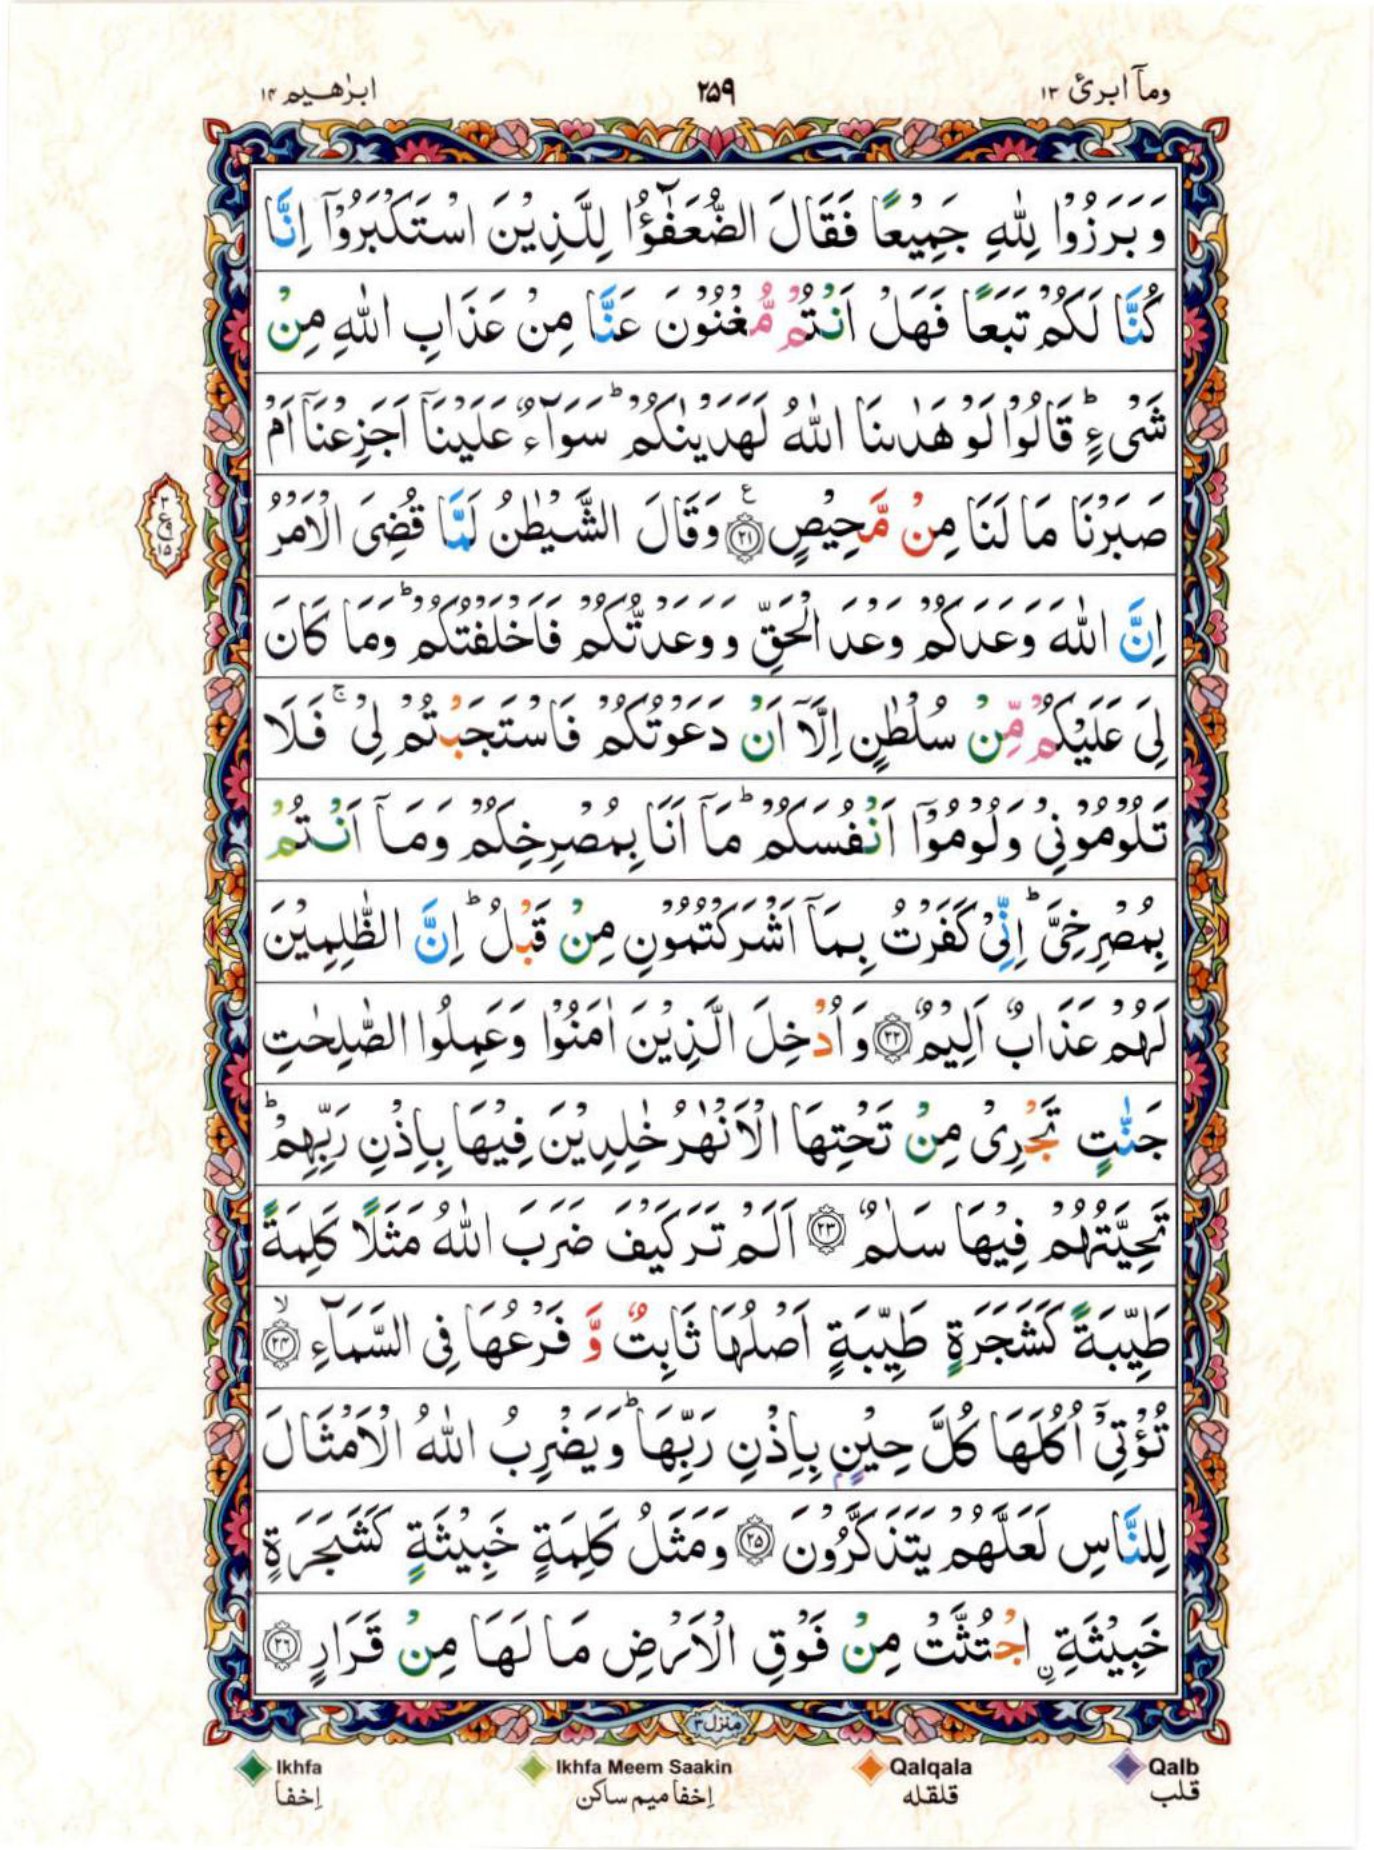 ومآ ابرئ ۱۳
۲۵۹
ابرٰهيم ۱۴
وَبَرَزُوۡا لِلّٰهِ جَمِيۡعًا فَقَالَ الضُّعَفٰٓؤُا لِلَّذِيۡنَ اسۡتَكۡبَرُوۡۤا اِنَّا
كُنَّا لَكُمۡ تَبَعًا فَهَلۡ اَنۡتُمۡ مُّغۡنُوۡنَ عَنَّا مِنۡ عَذَابِ اللّٰهِ مِنۡ
شَىۡءٍؕ قَالُوۡا لَوۡ هَدٰٮنَا اللّٰهُ لَهَدَيۡنٰكُمۡؕ سَوَآءٌ عَلَيۡنَاۤ اَجَزِعۡنَاۤ اَمۡ
صَبَرۡنَا مَا لَنَا مِنۡ مَّحِيۡصٍ ﴿۲۱﴾ وَقَالَ الشَّيۡطٰنُ لَمَّا قُضِىَ الۡاَمۡرُ
ع
۳
ع
۱۵
اِنَّ اللّٰهَ وَعَدَكُمۡ وَعۡدَ الۡحَقِّ وَوَعَدْتُّكُمۡ فَاَخۡلَفۡتُكُمۡؕ وَمَا كَانَ
لِىَ عَلَيۡكُمۡ مِّنۡ سُلۡطٰنٍ اِلَّاۤ اَنۡ دَعَوۡتُكُمۡ فَاسۡتَجَبۡتُمۡ لِىۡ ۚ فَلَا
تَلُوۡمُوۡنِىۡ وَلُوۡمُوۡۤا اَنۡفُسَكُمۡؕ مَاۤ اَنَا بِمُصۡرِخِكُمۡ وَمَاۤ اَنۡتُمۡ
بِمُصۡرِخِىَّؕ اِنِّىۡ كَفَرۡتُ بِمَاۤ اَشۡرَكۡتُمُوۡنِ مِنۡ قَبۡلُؕ اِنَّ الظّٰلِمِيۡنَ
لَهُمۡ عَذَابٌ اَلِيۡمٌ ﴿۲۲﴾ وَاُدۡخِلَ الَّذِيۡنَ اٰمَنُوۡا وَعَمِلُوا الصّٰلِحٰتِ
جَنّٰتٍ تَجۡرِىۡ مِنۡ تَحۡتِهَا الۡاَنۡهٰرُ خٰلِدِيۡنَ فِيۡهَا بِاِذۡنِ رَبِّهِمۡؕ
تَحِيَّتُهُمۡ فِيۡهَا سَلٰمٌ ﴿۲۳﴾ اَلَمۡ تَرَ كَيۡفَ ضَرَبَ اللّٰهُ مَثَلًا كَلِمَةً
طَيِّبَةً كَشَجَرَةٍ طَيِّبَةٍ اَصۡلُهَا ثَابِتٌ وَّ فَرۡعُهَا فِى السَّمَآءِ ۙ ﴿۲۴﴾
تُؤۡتِىۡۤ اُكُلَهَا كُلَّ حِيۡنٍۭ بِاِذۡنِ رَبِّهَاؕ وَيَضۡرِبُ اللّٰهُ الۡاَمۡثَالَ
لِلنَّاسِ لَعَلَّهُمۡ يَتَذَكَّرُوۡنَ ﴿۲۵﴾ وَمَثَلُ كَلِمَةٍ خَبِيۡثَةٍ كَشَجَرَةٍ
خَبِيۡثَةِ ۨاجۡتُثَّتۡ مِنۡ فَوۡقِ الۡاَرۡضِ مَا لَهَا مِنۡ قَرَارٍ ﴿۲۶﴾
منزل۳
Ikhfa
Ikhfa Meem Saakin
Qalqala
Qalb
إخفا
إخفا ميم ساكن
قلقله
قلب